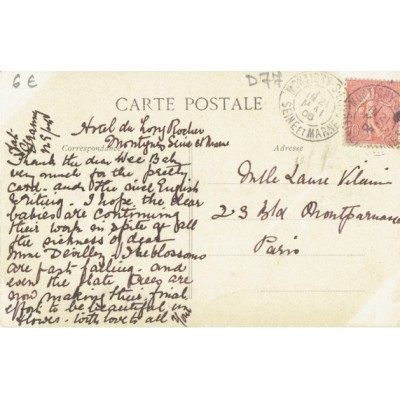 6 €
D77
CARTE POSTALE
Correspondance
Adresse
MONTIGNY
SEINE ET MARNE
Hotel du Long Rocher
Montigny Seine et Marne
Thank the dear Wee Bab
very much for the pretty
card. and the nice English
writing. I hope the dear
babies are continuing
their work in spite of all
the sickness of dear
Mme Devilley. The blossoms
are fast falling. and
even the late trees are
now making their final
effort to be beautiful in
flower. With love to all
Mlle Laure Vilain
23 Bld Montparnasse
Paris